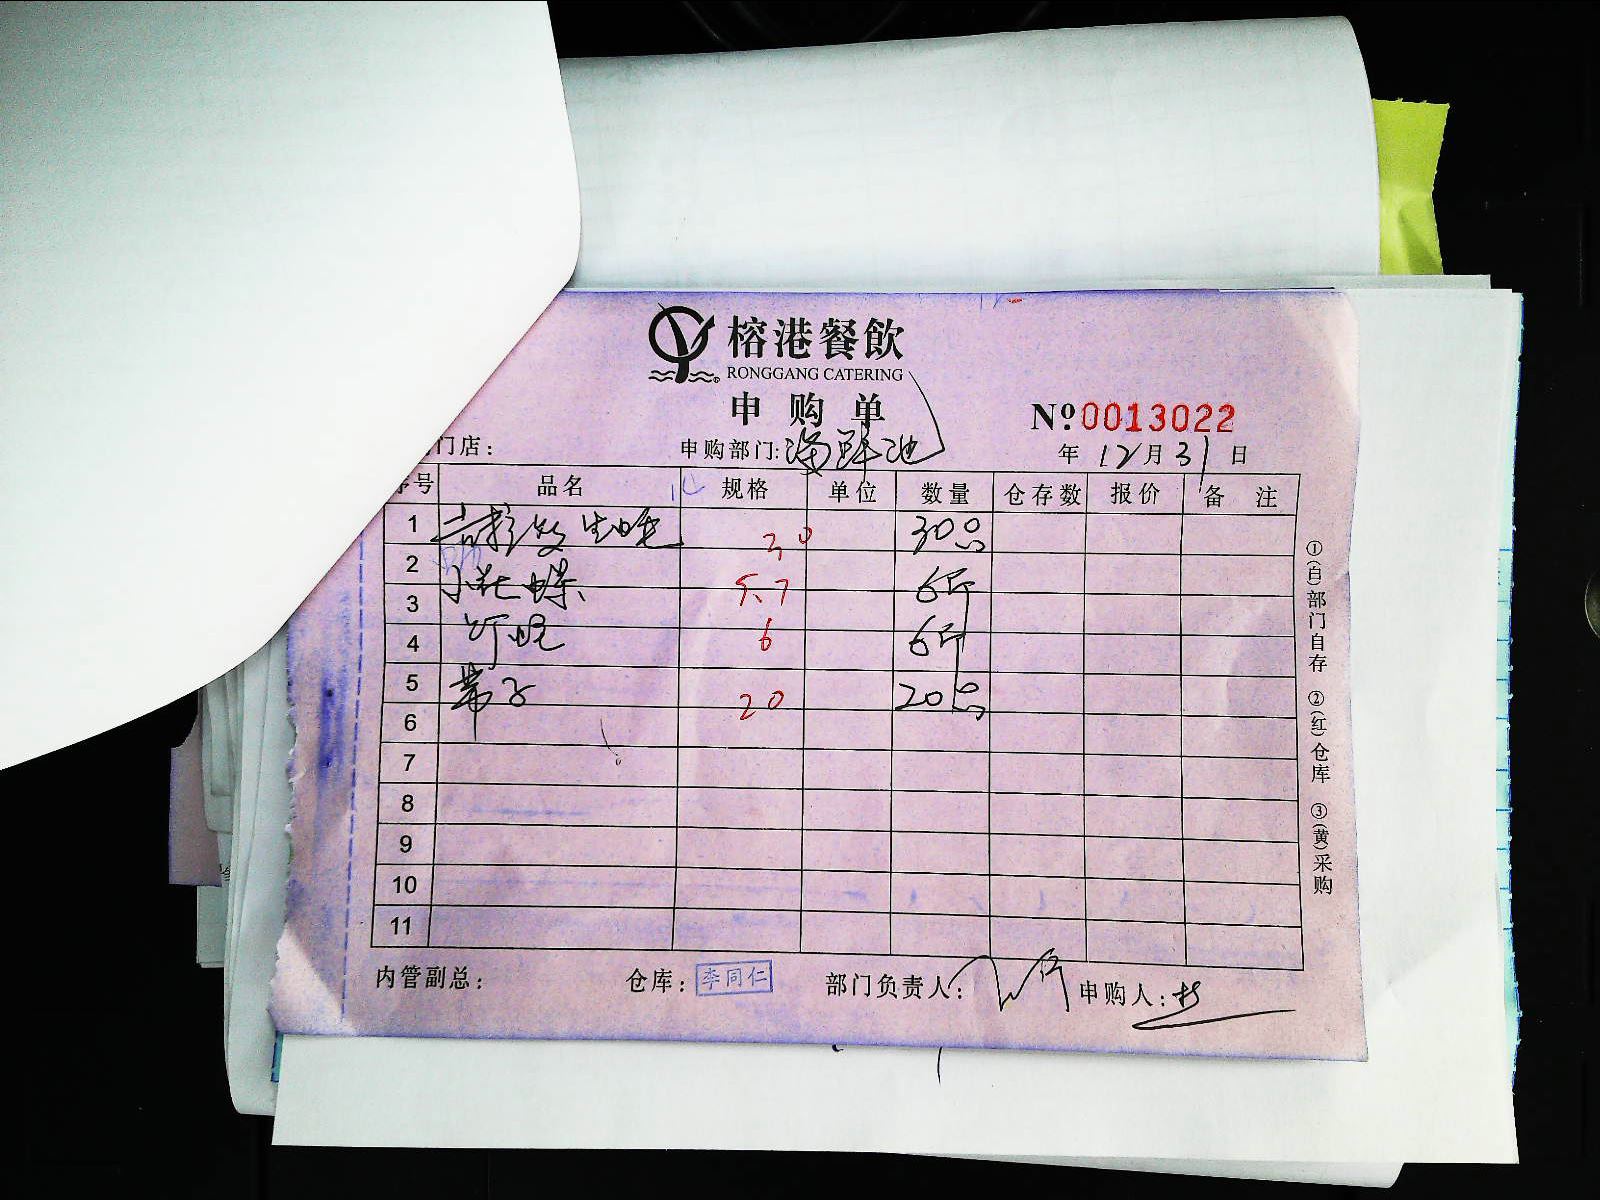 榕港餐飲
RONGGANG CATERING
申购单
Nº0013022
门店：
申购部门:海鲜池
年 12月31日
序号 品名 规格 单位 数量 仓存数 报价 备注
1 吉拉多生蚝 30 30只
2
3 小花螺 5.7 6斤
4 6 6斤
5 带子 20 20只
6
7
8
9
10
11
①(白)部门自存 ②(红)仓库 ③(黄)采购
内管副总： 仓库：李同仁 部门负责人： 申购人：